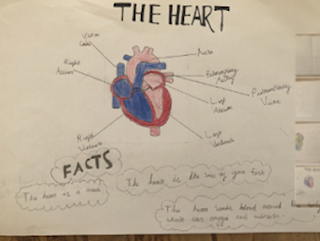 THE HEART
Vena
Cava
Aorta
Right
Atrium
Pulmonary
Artery
Pulmonary
Veins
Left
Atrium
Right
Ventricle
Left
Ventricle
FACTS
The heart is a
The heart is the size of your fist
The heart sends blood around
which
oxygen and nutrients